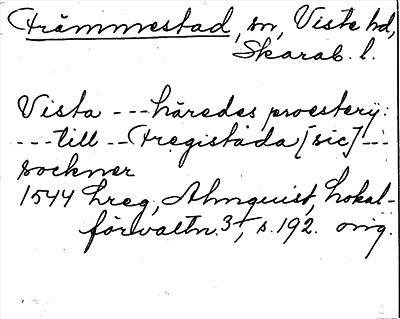 Främmestad, sn, Viste hd,
Skarab. l.
Vista --- häredes proestery:
--- till -- Fregistada [sic] ---
sockner
1544 Lreg, Almquist, Lokal-
förvaltn. 3, s. 192. orig.